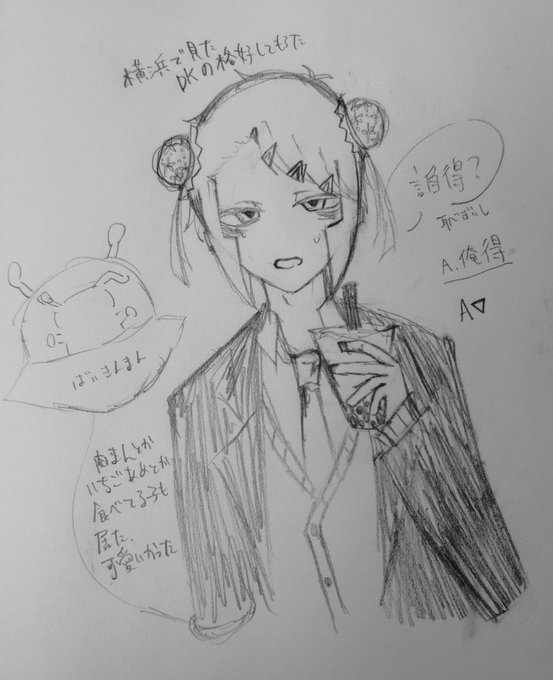 横浜で見た
DKの格好してもろた
誰得?
恥ずいし
A.俺得
A
ばいきんまん
肉まんとか
いちごあめとか
食べてる子も
居た.
可愛いかった